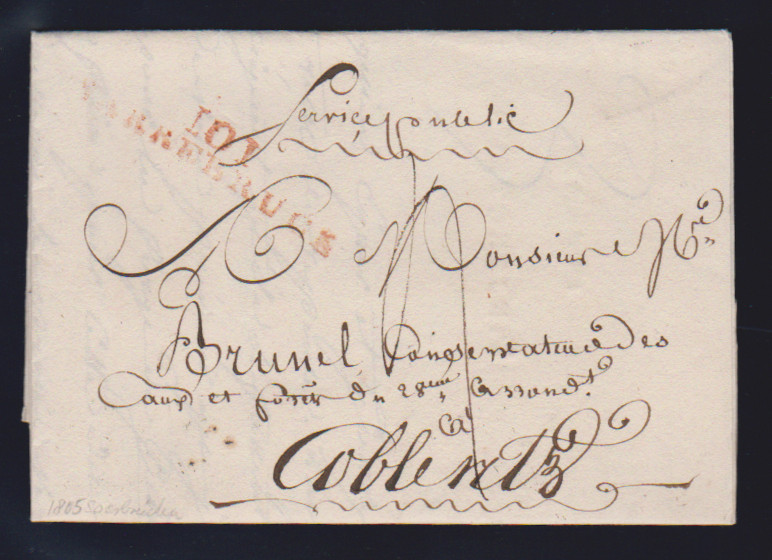 101
SARREBRUCK
Service public
A Monsieur
Brunel Conservateur des
Eaux et forêts du 28eme Arrondt.
a
Coblentz
1805 Saarbrücken